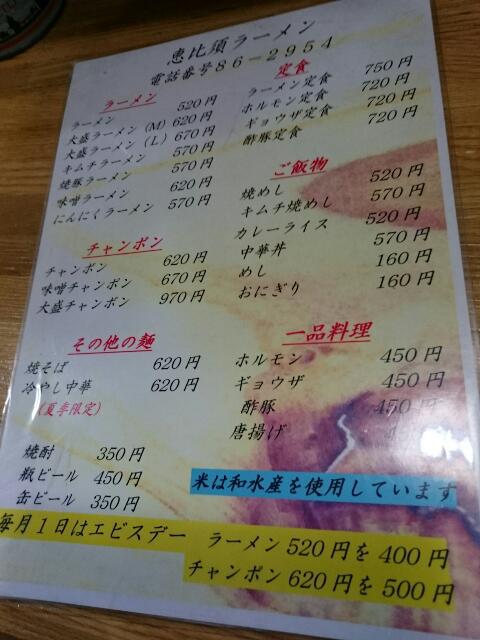 恵比須ラーメン
電話番号86-2954
ラーメン
ラーメン 520円
大盛ラーメン(M) 620円
大盛ラーメン(L) 670円
キムチラーメン 570円
焼豚ラーメン 570円
味噌ラーメン 620円
にんにくラーメン 570円
チャンポン
チャンポン 620円
味噌チャンポン 670円
大盛チャンポン 970円
その他の麺
焼そば 620円
冷やし中華 620円
(夏季限定)
焼酎 350円
瓶ビール 450円
缶ビール 350円
定食
ラーメン定食 750円
ホルモン定食 720円
ギョウザ定食 720円
酢豚定食 720円
ご飯物
焼めし 520円
キムチ焼めし 570円
カレーライス 520円
中華丼 570円
めし 160円
おにぎり 160円
一品料理
ホルモン 450円
ギョウザ 450円
酢豚 450円
唐揚げ
米は和水産を使用しています
毎月1日はエビスデー ラーメン520円を400円
チャンポン620円を500円